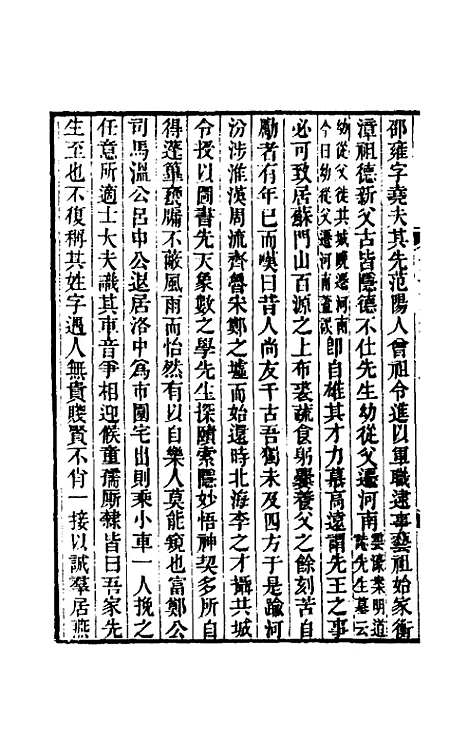 邵雍字堯夫其先范陽人曾祖令進以軍職逮事藝祖始家衡
漳祖德新父古皆隱德不仕先生幼從父遷河南雲濠案明道誌先生墓云
幼從父徙共城晚遷河南今日幼從父遷河南蓋誤即自雄其才力慕高遠謂先王之事
必可致居蘇門山百源之上布裘蔬食躬爨養父之餘刻苦自
勵者有年已而嘆曰昔人尚友千古吾獨未及四方于是踰河
汾涉淮漢周流齊魯宋鄭之墟而始還時北海李之才攝共城
令授以圖書先天象數之學先生探賾索隱妙悟神契多所自
得蓬篳甕牖不蔽風雨而怡然有以自樂人莫能窺也富鄭公
司馬溫公呂申公退居洛中爲市園宅出則乘小車一人挽之
任意所適士大夫識其車音爭相迎候童孺廝隸皆曰吾家先
生至也不復稱其姓字遇人無貴賤賢不肖一接以誠羣居燕